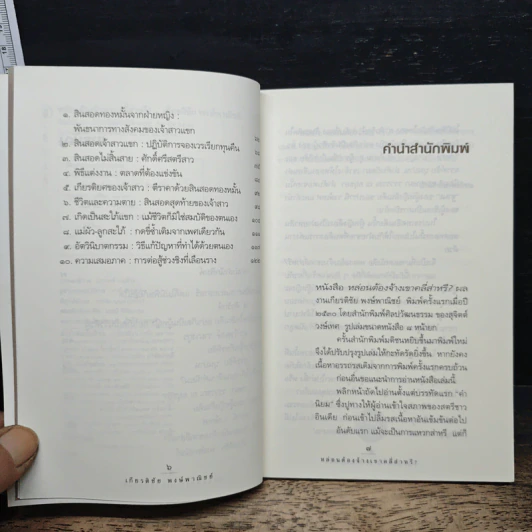 ๑. สินสอดทองหมั้นจากฝ่ายหญิง :
พันธนาการทางสังคมของเจ้าสาวแขก
๒. สินสอดเจ้าสาวแขก : ปฏิบัติการจองเวรเรียกทุนคืน
๓. สินสอดไม่สิ้นสาย : ศักดิ์ศรีสตรีสาว
๔. พิธีแต่งงาน : ตลาดที่ต้องแข่งขัน
๕. เกียรติยศของเจ้าสาว : ตีราคาด้วยสินสอดทองหมั้น
๖. ชีวิตและความตาย : สินสอดสุดท้ายของเจ้าสาว
๗. เกิดเป็นสะใภ้แขก : แม้ชีวิตก็มิใช่สมบัติของตนเอง
๘. แม่ผัว-ลูกสะใภ้ : กดขี่ซ้ำเติมจากเพศเดียวกัน
๙. อัตวินิบาตกรรม : วิธีแก้ปัญหาที่ทำได้ด้วยตนเอง
๑๐. ความเสมอภาค : การต่อสู้ช่วงชิงที่เลือนราง
๖
เกียรติชัย พงษ์พาณิชย์
คำนำสำนักพิมพ์
หนังสือ หล่อนต้องจ้างเขาคลี่ส่าหรี? ผล
งานเกียรติชัย พงษ์พาณิชย์ พิมพ์ครั้งแรกเมื่อปี
๒๕๓๐ โดยสำนักพิมพ์ศิลปวัฒนธรรม ของสุจิตต์
วงษ์เทศ รูปเล่มขนาดหนังสือ ๘ หน้ายก
ครั้นสำนักพิมพ์มติชนหยิบขึ้นมาพิมพ์ใหม่
จึงได้ปรับปรุงรูปเล่มให้กะทัดรัดยิ่งขึ้น หากยังคง
เนื้อหาอรรถรสเดิมจากการพิมพ์ครั้งแรกครบถ้วน
ก่อนอื่นขอแนะนำการอ่านหนังสือเล่มนี้
พลิกหน้าถัดไปอ่านตั้งแต่บรรทัดแรก "ค่า
นิยม" ซึ่งปูทางให้ผู้อ่านเข้าใจสภาพของสตรีชาว
อินเดีย ก่อนเข้าไปลิ้มรสเนื้อหาอันเข้มข้นต่อไป
อันดับแรก แม้จะเป็นการแหวกส่าหรี แต่ก็
๘
หล่อนต้องจ้างเขาคลี่ส่าหรี?